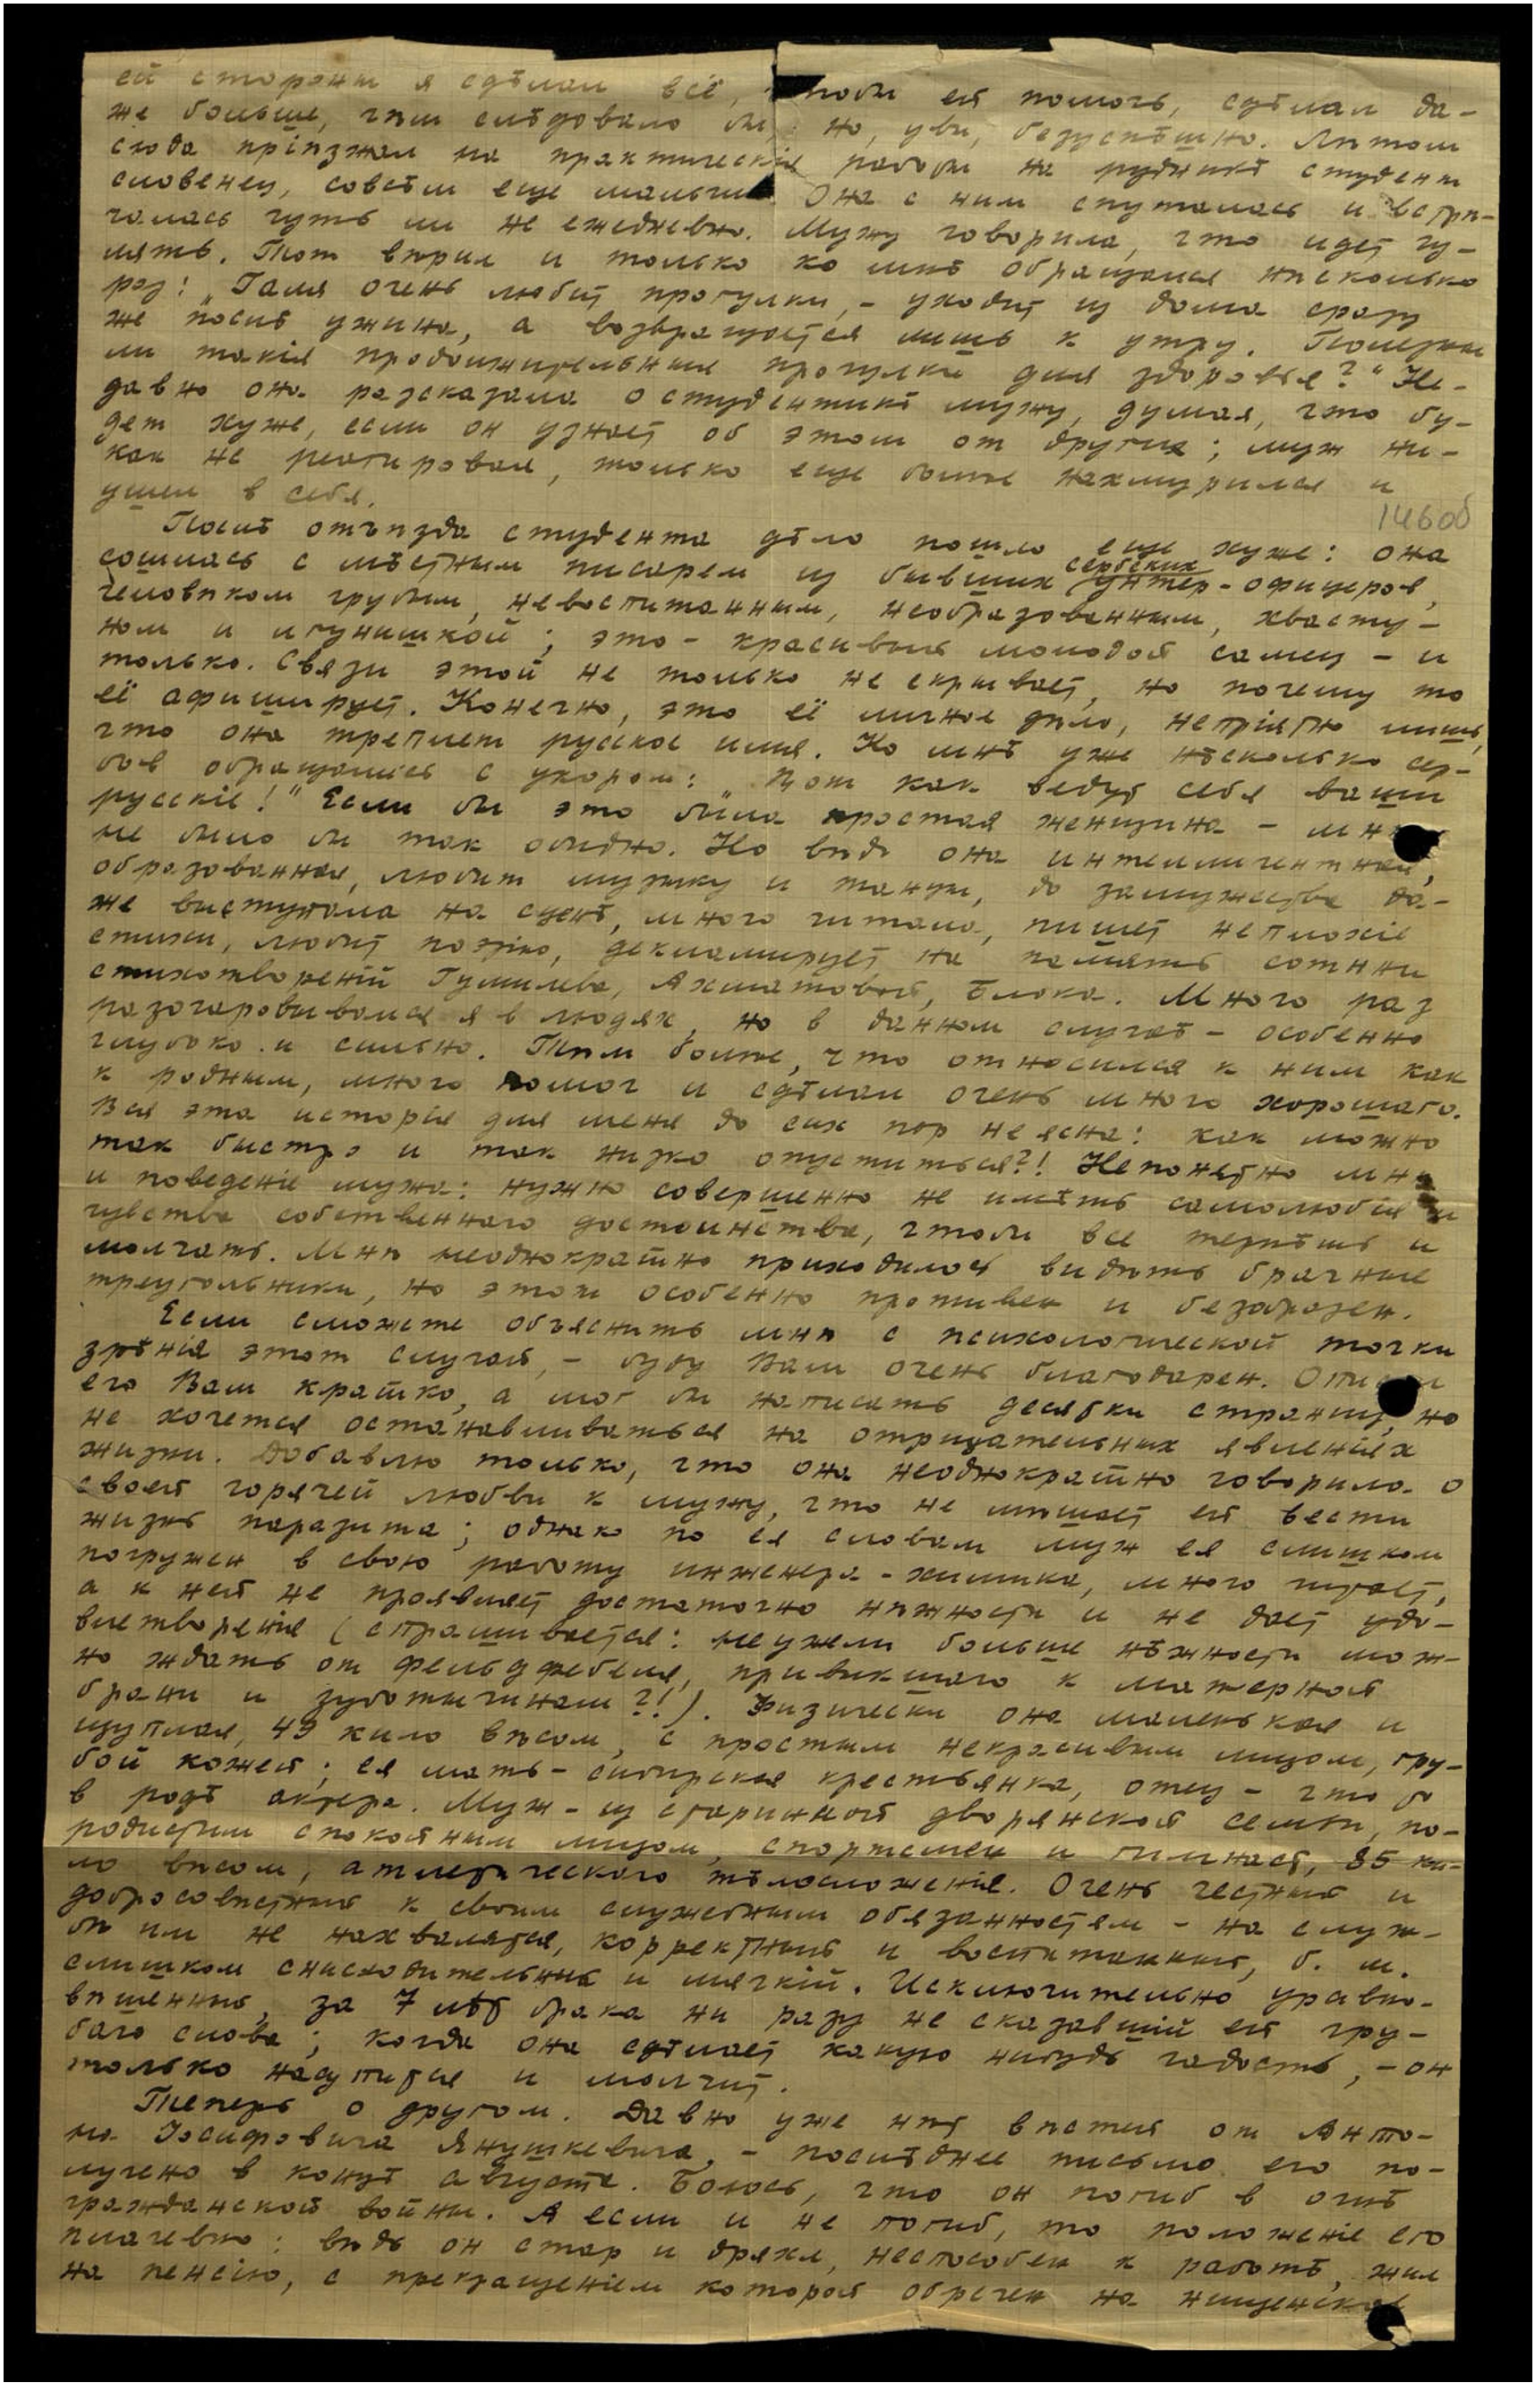 ей стороны я сдѣлал всё, чтобы ей помочь, сдѣлал да-
же больше, чѣм слѣдовало бы, но, увы, безуспѣшно. Лѣтом
сюда пріѣзжал на практическія работы на рудникѣ студент
словенец, совсѣм еще мальчик. Она с ним спуталась и встрѣ-
чалась чуть ли не ежедневно. Мужу говорила, что идет гу-
лять. Тот вѣрил и только ко мнѣ обращался нѣсколько
раз: „Галя очень любит прогулки, – уходит из дома сразу
же послѣ ужина, а возвращается лишь к утру. Полезны
ли такія продолжительныя прогулки для здоровья?" Не-
давно она разсказала о студентикѣ мужу, думая, что бу-
дет хуже, если он узнает об этом от других; муж ни-
как не реагировал, только еще больше нахмурился и
ушел в себя.
14606
Послѣ отъѣзда студента дѣло пошло еще хуже: она
сошлась с мѣстным писарем из бывших сербских унтер-офицеров,
человѣком грубым, невоспитанным, необразованным, хвасту-
ном и лгунишкой; это – красивый молодой самец – и
только. Связи этой не только не скрывает, но почему то
её афиширует. Конечно, это её личное дѣло, непріятно лишь,
что она треплет русское имя. Ко мнѣ уже нѣсколько сер-
бов обращались с укором: „Вот как ведут себя ваши
русскіе!" Если бы это была простая женщина – мнѣ
не было бы так обидно. Но вѣдь она интеллигентная,
образованная, любит музыку и танцы, до замужества да-
же выступала на сценѣ, много читала, пишет неплохіе
стихи, любит поэзію, декламирует на память сотни
стихотвореній Гумилева, Ахматовой, Блока. Много раз
разочаровывался я в людях, но в данном случаѣ – особенно
глубоко и сильно. Тѣм болѣе, что относился к ним как
к родным, много помог и сдѣлал очень много хорошаго.
Вся эта исторія для меня до сих пор не ясна: как можно
так быстро и так низко опуститься?! Непонятно мнѣ
и поведеніе мужа: нужно совершенно не имѣть самолюбія и
чувства собственного достоинства, чтобы все терпѣть и
молчать. Мнѣ неоднократно приходилось видѣть брачные
треугольники, но этот особенно противен и безобразен.
Если сможете объяснить мнѣ с психологической точки
зрѣнія этот случай, – буду Вам очень благодарен. Описал
его Вам кратко, а мог бы написать десятки страниц, но
не хочется останавливаться на отрицательных явленіях
жизни. Добавлю только, что она неоднократно говорила о
своей горячей любви к мужу, что не мѣшает ей вести
жизнь паразита; однако по ея словам муж ея слишком
погружен в свою работу инженера-химика, много читает,
а к ней не проявляет достаточно нѣжности и не дает удо-
влетворенія (спрашивается: неужели больше нѣжности мож-
но ждать от фельдфебеля, привыкшаго к матерной
брани и зуботычинам?!). Физически она маленькая и
щуплая, 49 кило вѣсом, с простым некрасивым лицом, гру-
бой кожей; ея мать – сибирская крестьянка, отец – что то
в родѣ актера. Муж – из старинной дворянской семьи, по-
родистым спокойным лицом, спортсмен и гимнаст, 85 ки-
ло вѣсом, атлетическаго тѣлосложенія. Очень честный и
добросовѣстный к своим служебным обязанностям – на служ-
бѣ им не нахвалятся, корректный и воспитанный, б. м.
слишком снисходительный и мягкій. Исключительно уравно-
вѣшенный, за 7 лѣт брака ни разу не сказавшій ей гру-
баго слова; когда она сдѣлает какую нибудь гадость, – он
только насупится и молчит.
Теперь о другом. Давно уже нѣт вѣстей от Анто-
на Іосифовича Янушкевича, – послѣднее письмо его по-
лучено в концѣ августа. Боюсь, что он погиб в огнѣ
гражданской войны. А если и не погиб, то положеніе его
плачевно: вѣдь он стар и дряхл, неспособен к работѣ, жил
на пенсію, с прекращеніем которой обречен на нищенское